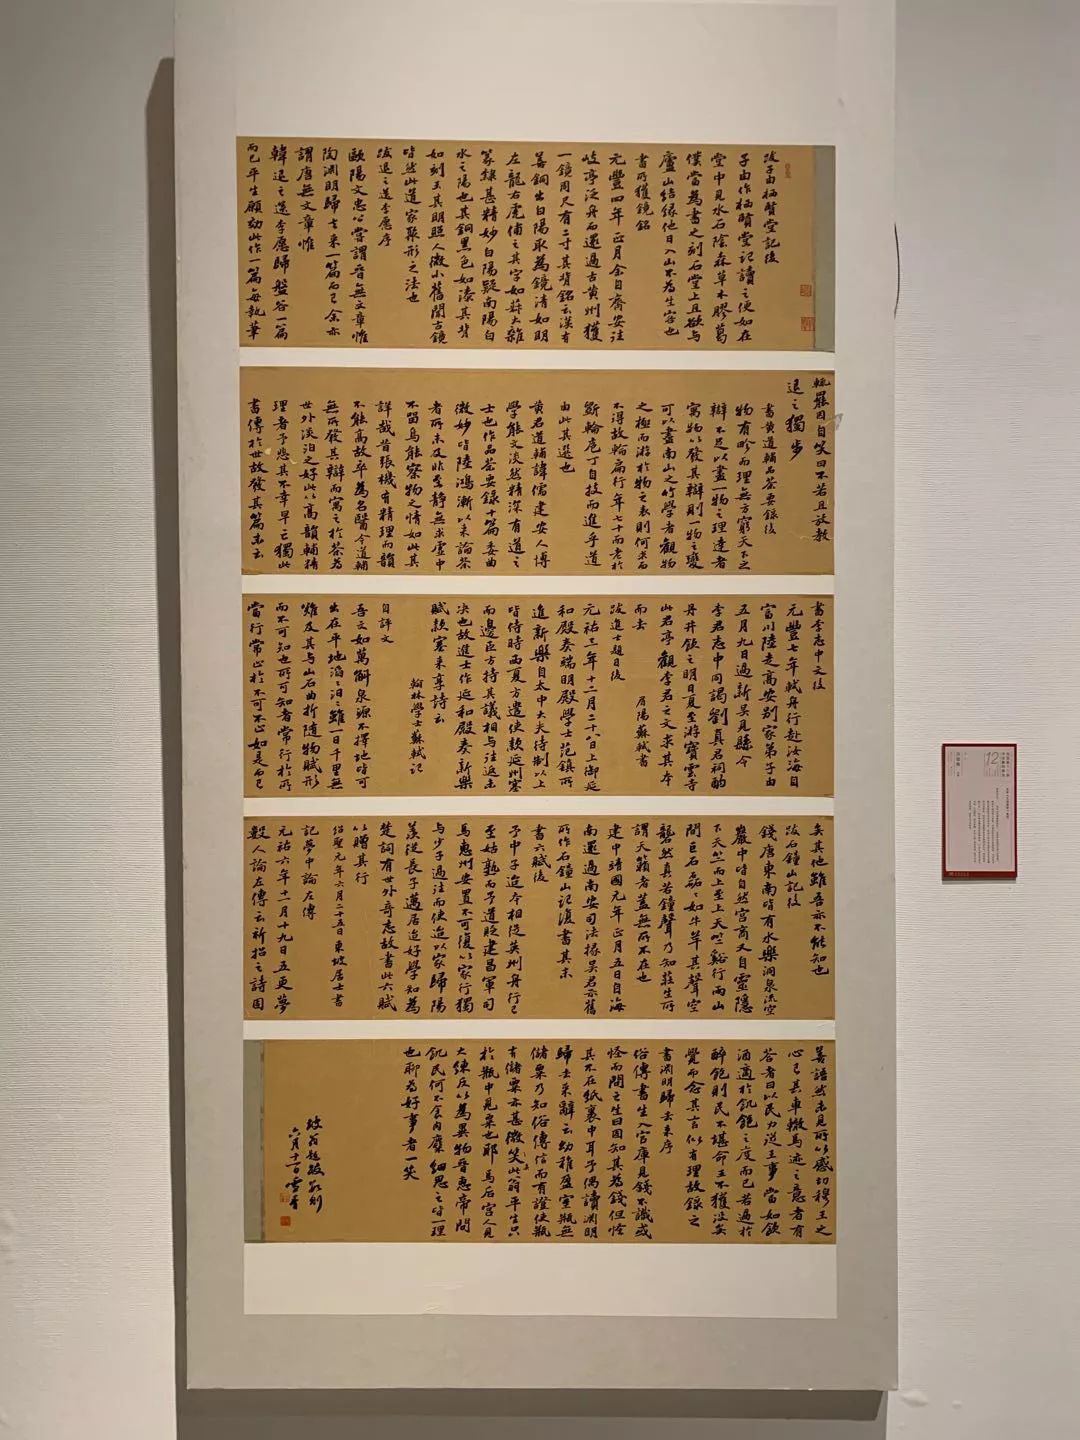 跋子由栖賢堂記後
子由作栖賢堂記讀之便如在
堂中見水石陰森草木膠葛
僕當為書之刻石堂上且欲与
廬山結緣他日入山不為生客也
書所獲鏡銘
元豐四年正月余自齊安往
岐亭泛舟而還過古黄州獲
一鏡周尺有二寸其背銘云漢有
善銅出白陽取為鏡清如明
左龍右虎俌之其字如菽大雜
篆隸甚精妙白陽疑南陽白
水之陽也其銅黑色如漆其背
如刻玉其明照人微小舊聞古鏡
皆然此道家聚形之法也
跋退之送李愿序
歐陽文忠公嘗謂晉無文章惟
陶淵明歸去來一篇而已余亦
謂唐無文章惟
韓退之送李愿歸盤谷一篇
而已平生願効此作一篇每執筆
輒罷因自笑曰不若且放教
退之獨步
書黄道輔品茶要錄後
物有畛而理無方窮天下之
辯不足以盡一物之理達者
寓物以發其辯則一物之變
可以盡南山之竹學者觀物
之極而游於物之表則何求而
不得故輪扁行年七十而老於
斲輪庖丁自技而進乎道
由此其選也
黄君道輔諱儒建安人博
學能文淡然精深有道之
士也作品茶要錄十篇委曲
微妙皆陸鴻漸以来論茶
者所未及非至靜無求虛中
不留烏能察物之情如此其
詳哉昔張機有精理而韻
不能高故卒為名醫今道輔
無所發其辯而寓之於茶為
世外淡泊之好此以高韻輔精
理者予悲其不幸早亡獨此
書傳於世故發其篇末云
書李志中文後
元豐七年軾舟行赴汝海自
富川陸走高安别家弟子由
五月九日過新吴見縣令
李君志中同謁劉真君祠酌
丹井飲之明日夏至游寶雲寺
此君亭觀李君之文求其本
而去
眉陽蘇軾書
跋進士題目後
元祐三年十二月二十八日上御延
和殿奏端明殿學士范鎮所
進新樂自太中大夫待制以上
皆侍時西夏方遣使款延州塞
而邊臣方持其議相与往返未
决也故進士作延和殿奏新樂
賦款塞来享詩云
翰林學士蘇軾記
自評文
吾文如萬斛泉源不擇地皆可
出在平地滔滔汨汨雖一日千里無
難及其与山石曲折随物賦形
而不可知也所可知者常行於所
當行常止於不可不止如是而已
矣其他雖吾亦不能知也
跋石鐘山記後
錢唐東南皆有水樂洞泉流空
巖中皆自然宫商又自靈隱
下天竺而上至上天竺谿行兩山
間巨石磊磊如牛羊其聲空
礱然真若鐘聲乃知莊生所
謂天籟者蓋無所不在也
建中靖國元年正月五日自海
南還過南安司法掾吴君示舊
所作石鐘山記復書其末
書六賦後
予中子迨本相從英州舟行已
至姑熟而予道貶建昌軍司
馬惠州安置不可復以家行獨
与少子過往而使迨以家歸陽
羨從長子邁居迨好學知為
楚詞有世外奇志故書此六賦
以贈其行
紹聖元年六月二十五日東坡居士書
記夢中論左傳
元祐六年十一月十九日五更夢
數人論左傳云祈招之詩固
善語然未見所以感切穆王之
心已其車轍馬迹之意者有
答者曰以民力從王事當如飲
酒適於飢飽之度而已若過於
醉飽則民不堪命王不獲没矣
覺而念其言似有理故錄之
書淵明歸去来序
俗傳書生入官庫見錢不識或
怪而問之生曰固知其為錢但怪
其不在紙裹中耳予偶讀淵明
歸去来辭云幼稚盈室瓶無
儲粟乃知俗傳信而有證使瓶
有儲粟亦甚微矣此翁平生只
於瓶中見粟也耶馬后宫人見
大練反以為異物晉惠帝問
飢民何不食肉糜細思之皆一理
也聊為好事者一笑
坡翁題跋數則
12